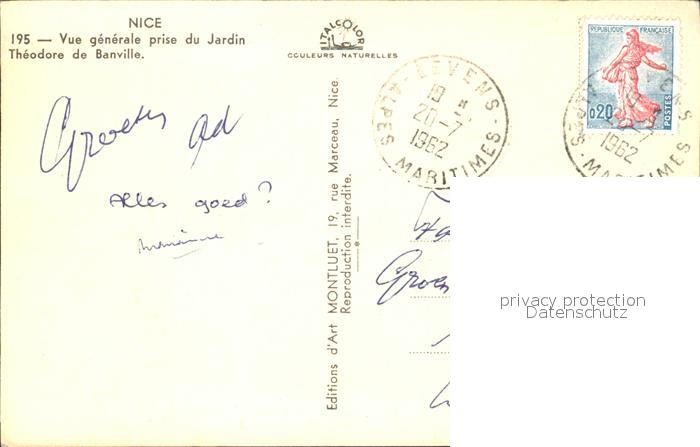 NICE
195 — Vue générale prise du Jardin
Théodore de Banville.
ITALCOLOR
COULEURS NATURELLES
LEVENS
18
20-7
1962
ALPES-MARITIMES
RÉPUBLIQUE FRANÇAISE
0,20
POSTES
1962
MARITIMES
Groeten Ad
Alles goed?
Editions d'Art MONTLUET, 19, rue Marceau, Nice.
Reproduction interdite.
Groen
privacy protection
Datenschutz